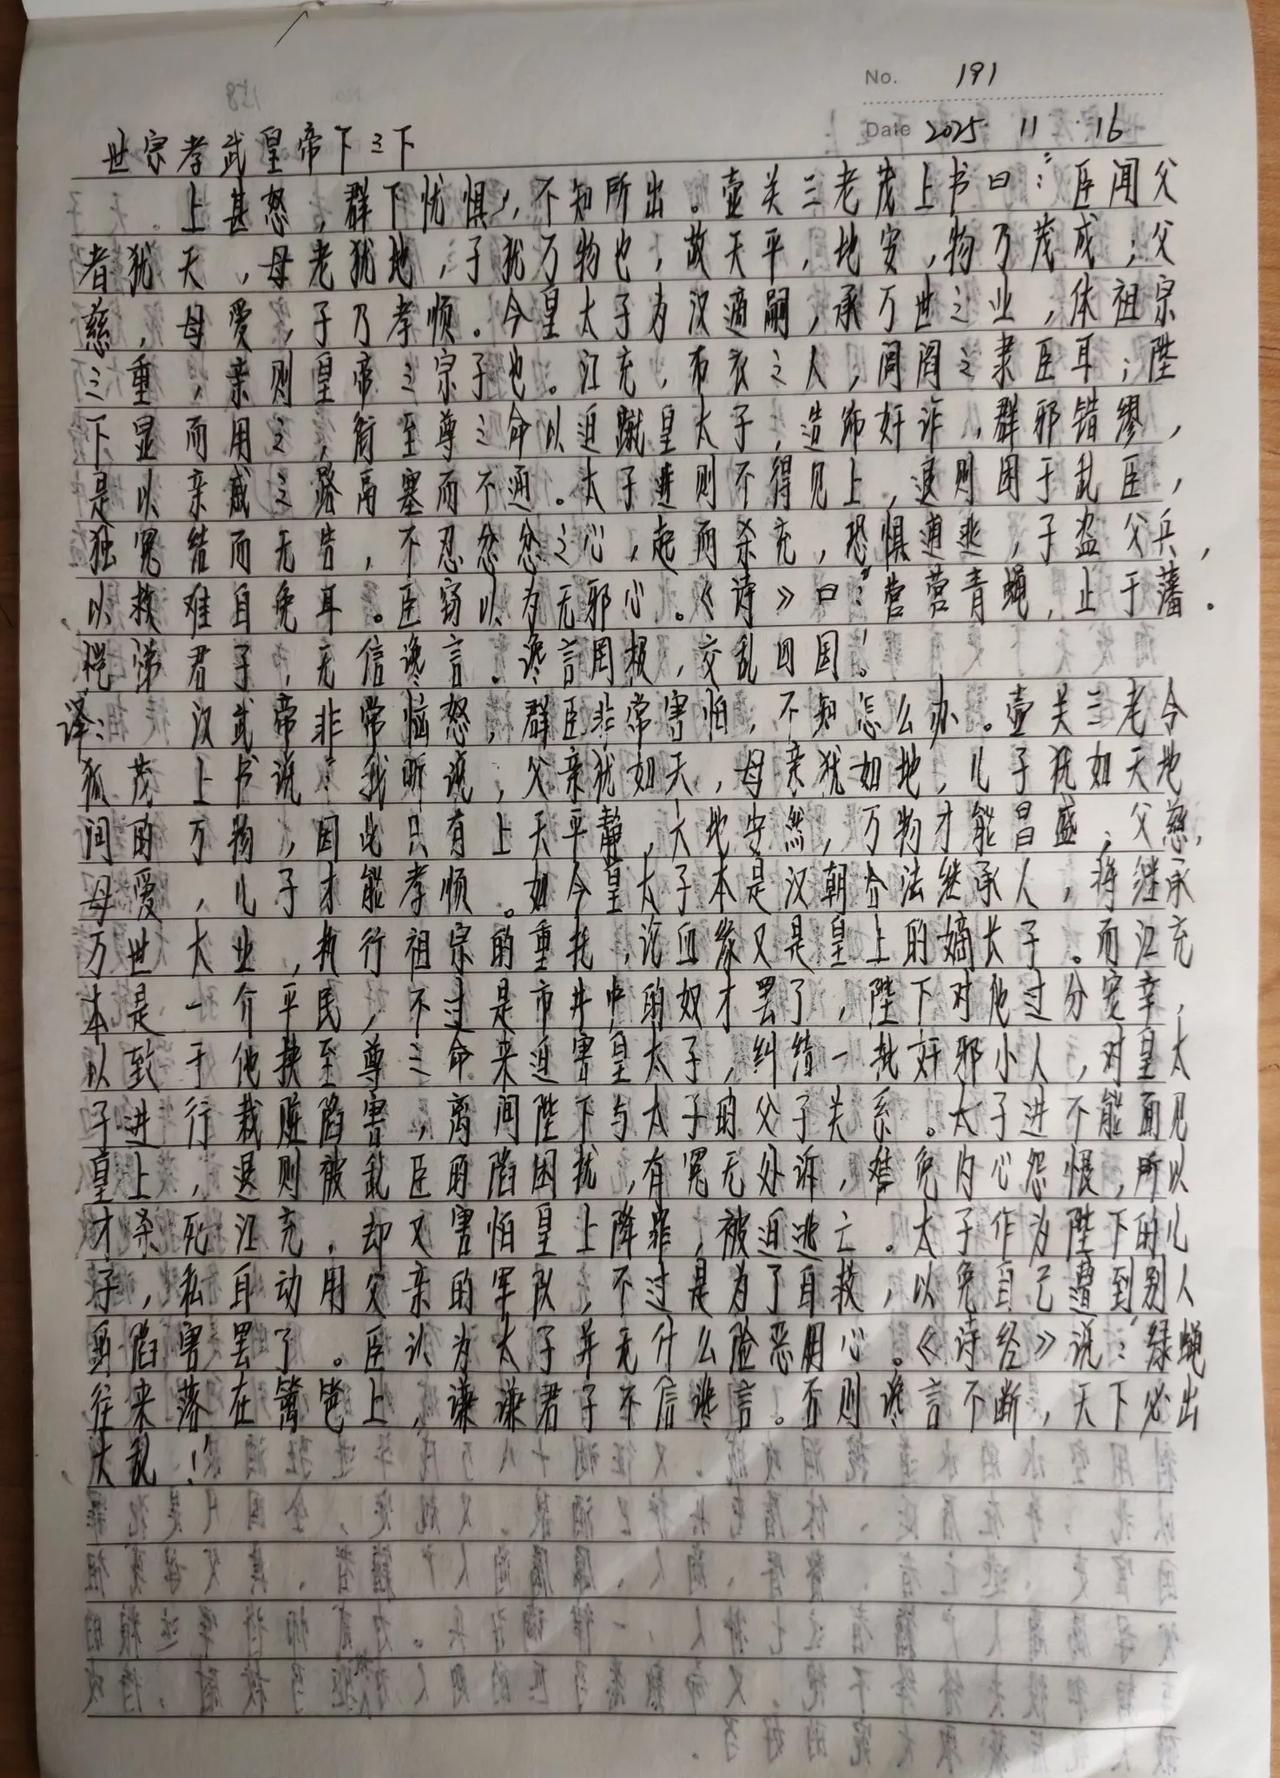 No. 191
Date 2025. 11. 16
世宗孝武皇帝下之下
上甚怒，群下忧惧，不知所出。壶关三老茂上书曰：“臣闻父
者犹天，母老犹地，子犹万物也，故天平，地安，物乃茂成；父
慈，母爱，子乃孝顺。今皇太子为汉適嗣，承万世之业，体祖宗
之重，亲则皇帝之宗子也。江充，布衣之人，闾阎之隶臣耳；陛
下显而用之，衔至尊之命以迫蹴皇太子，造饰奸诈，群邪错缪，
是以亲戚之路鬲塞而不通。太子进则不得见上，退则困于乱臣，
独冤结而无告，不忍忿忿之心，起而杀充，恐惧逋逃，子盗父兵，
以救难自免耳。臣窃以为无邪心。《诗》曰：“营营青蝇，止于藩。
恺悌君子，无信谗言。谗言罔极，交乱四国。’
译：汉武帝非常恼怒，群臣非常害怕，不知怎么办。壶关三老令
狐茂上书说：“我听说，父亲犹如天，母亲犹如地，儿子犹如天地
间的万物，因此只有上天平静，大地安然，万物才能昌盛；父慈，
母爱，儿子才能孝顺。如今皇太子本是汉朝合法继承人，将继承
万世大业，执行祖宗的重托，论血缘又是皇上的嫡长子。而江充
本是一介平民，不过是市井中的奴才罢了，陛下对他过分宠幸，
以致于他挟至尊之命来迫害皇太子，纠结一批奸邪小人，对皇太
子进行栽赃陷害，离间陛下与太子的父子关系。太子进不能面见
皇上，退则被乱臣的陷困扰，有冤无处诉，难免内心怨恨，所以
才杀死江充，却又害怕皇上降罪，被迫逃亡。太子作为陛下的儿
子，私自动用父亲的军队，不过是为了自救，以免自己遭到别人
陷害罢了。臣认为太子并无什么险恶用心。《诗经》说：“绿蝇
往来落在篱笆上，谦谦君子不信谗言。否则谗言不断，天下必出
大乱！’